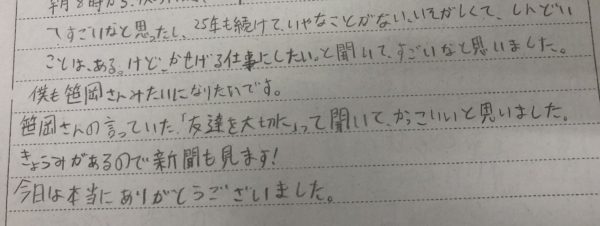 朝8時から
てすごいなと思ったし、25年も続けて、いやなことがない、いそがしくて、しんどい
ことは、ある。けど、かせげる仕事にしたい。と聞いて、すごいなと思いました。
僕も笹岡さんみたいになりたいです。
笹岡さんの言っていた、「友達を大切に」って聞いて、かっこいいと思いました。
きょうみがあるので新聞も見ます!
今日は本当にありがとうございました。